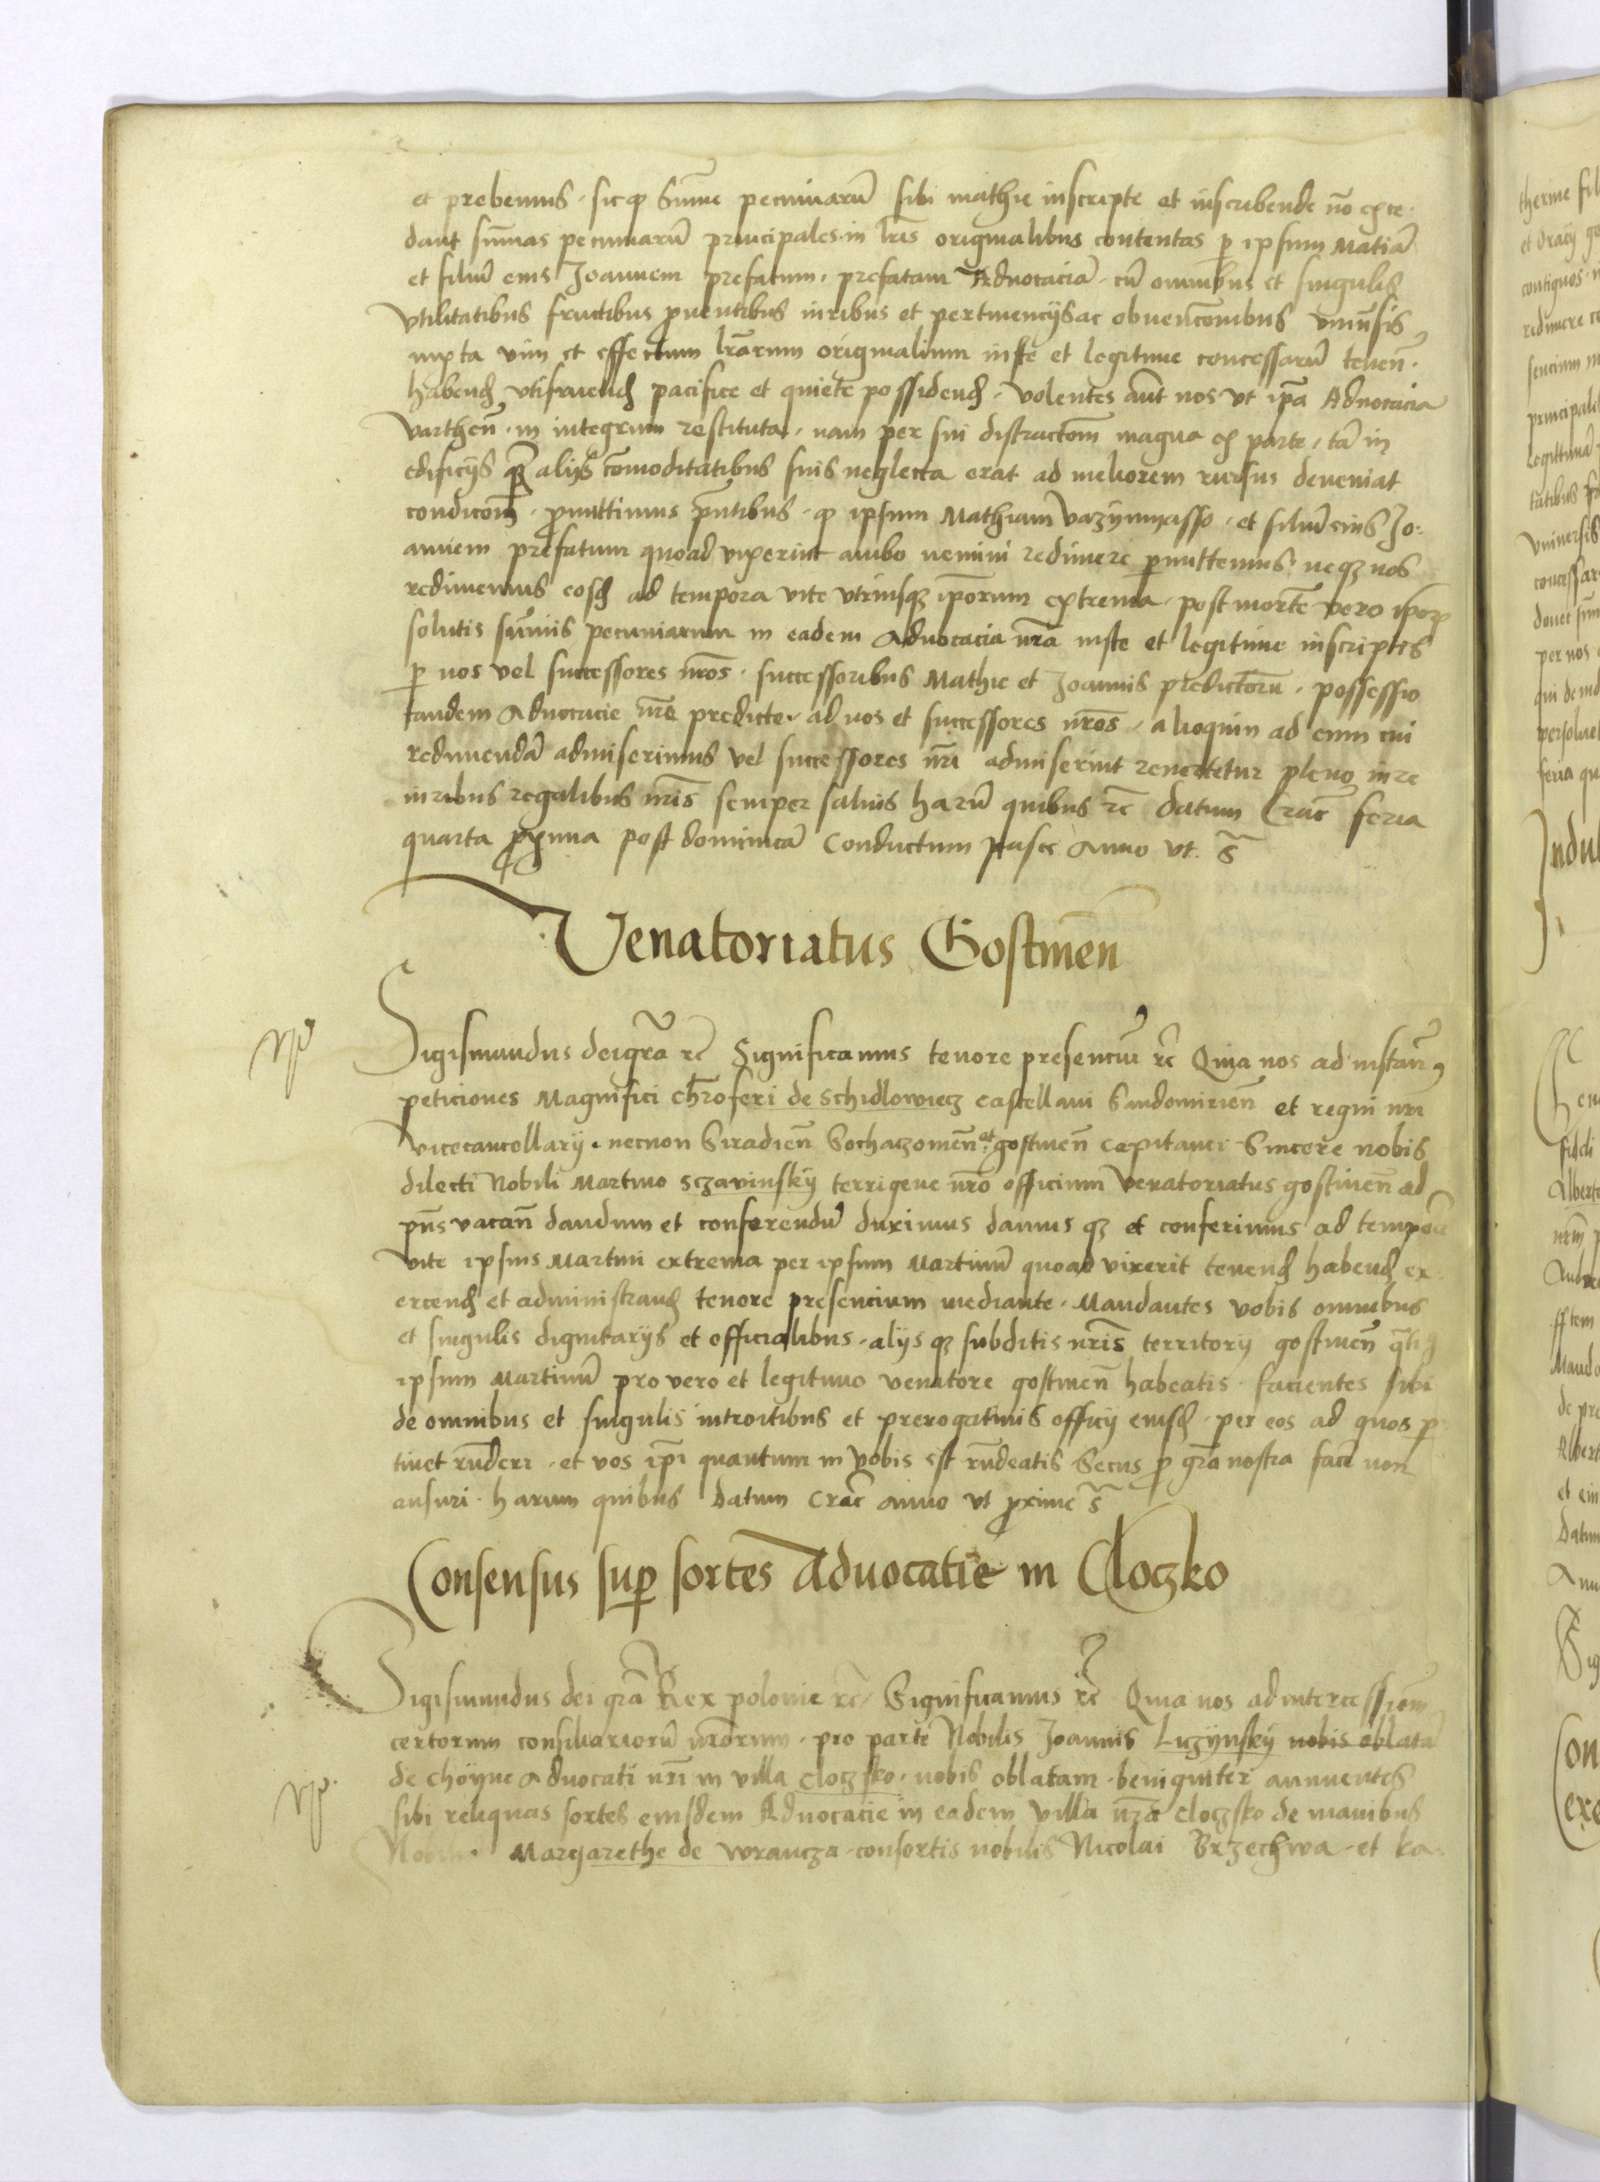 et prebemus · sicq̃ Sum̃e pecuniarũ sibi mathie inscripte et inscribende nõ exce-
dant sum̃as pecuniarũ principales in lr̃is originalibus contentas p̱ ipsum Matiã
et filiũ eius Joannem prefatum, prefatam Advocaciã cũ omnibus et singulis
Vtilitatibus fructibus proventibus iuribus et pertinencijs ac obvenc̃onibus vniũsis
iuxta vim et effectum lr̃arum originalium iuste et legitime concessarũ teneñ ·
habend̃ vtifruend̃ pacifice et quiete possidend̃ · volentes aũt nos vt ip̃a Advocacia
Varthen̄ · in integrum restituta, nam per sui distractom̃ magna ex parte, tã in
edificijs q̃ alijs com̃oditatibus suis neglecta erat ad meliorem rursus deveniat
condicom̃ · promittimus p̃ntibus · q̃ ipsum Mathiam Vazynmasso · et filiũ eius Jo:
annem prefatum quoad vixerint ambo nemini redimere p̱mittemus, neqꝫ nos
redimemus eosd̃ ad tempora vite vtriusqꝫ ip̃orum extrema · post mortẽ vero ip̃oꝝ
solutis sum̃is pecuniarum in eadem Advocacia nr̃a iuste et legitime inscriptis
p̱ nos vel successores nr̃os · successoribus Mathie et Joannis predictorũ · possessio
tandem Advocacie nr̃e predicte, ad nos et successores nr̃os, alioquin ad eum cui
redimendã admiserimus vel successores nr̃i admiserint revertetur pleno iure
iuribus regalibus nr̃is semper salvis harũ quibus rc̃ datum Crac̃ feria
quarta proxima post dominicã Conductum pasce Anno vt. s̃
Venatoriatus Gostineñ
Sigismundus dei gr̃a rc̃ Significamus tenore presenciũ rc̃ Quia nos ad instan̄
peticiones Magnifici Chr̃oferi de Schidlowiecz castellani Sandomirieñ et regni nr̃i
vicecancellarij · necnon Siradieñ Sochaczovieñ et gostineñ capitanei Sincere nobis
dilecti Nobili Martino Sczavinskÿ terrigene nr̃o officium Venatoriatus gostineñ ad
p̃ns vacañ dandum et conferendũ duximus damus qꝫ et conferimus ad tempora
vite ipsius Martini extrema per ipsum Martinũ quoad vixerit tenend̃ habend̃ ex-
ercend̃ et administrand̃ tenore presencium mediante · Mandantes vobis omnibus
et singulis dignitarijs et officialibus · alijs qꝫ subditis nr̃is territorij gostineñ
ipsum Martinũ pro vero et legitimo venatore gostineñ habeatis · facientes sibi
de omnibus et singulis introitibus et prerogativis officij eiusd̃ · per eos ad quos p̱
tinet rñderi · et vos ip̃i quantum in vobis est rñdeatis Secus p̱ gr̃a nostra facẽ non
ausuri · harum quibus Datum Crac̃ anno vt proxime s̃
Consensus sup̱ sortes Advocatie in Cloczko
Sigismundus dei gr̃a Rex polonie rc̃ Significamus rc̃ Quia nos ad intercessiom̃
certorum consiliariorũ nr̃orum · pro parte Nobilis Joannis Luczÿnskÿ nobis oblatã
de Choÿne Advocati nr̃i in villa Cloczsko · nobis oblatam · benigniter annuentes
sibi reliquas sortes eiusdem Advocacie in eadem villa nr̃a Cloczsko de manibus
Nobilis Margarethe de Wrancza · consortis nobilis Nicolai Brzechwa · et ka-